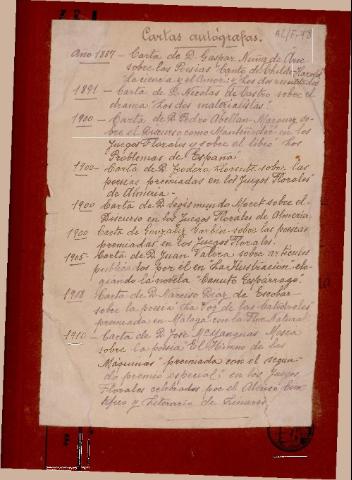 Cartas autógrafas.
Año 1887 - Carta de D. Gaspar Núñez de Arce
sobre las Poesías "Canto de Childe-Harold
La ciencia y el Amor" y "Los dos
1891 - Carta de D. Nicolas de Castro sobre el
drama "Los dos materialistas".
1900 - Carta de D. Pedro Abellan-Marquez so-
bre el Discurso como Mantenedor en los
Juegos Florales y sobre el libro "Los
Problemas de España.
1900 - Carta de D. Teodoro Llorente sobre las
poesias premiadas en los Juegos Florales
de Almeria.
1900 Carta de D. Segismundo Moret sobre el
Discurso en los Juegos Florales de Almeria
1900 Carta de Gonzalez Garbín sobre las poesias
premiadas en los Juegos Florales.
1905 - Carta de D. Juan Valera sobre articulos
publicados por el en La Ilustracion elo-
giando la novela "Canuto Espárrago".
1908 Carta de D. Narciso Diaz de Escobar
sobre la poesia "La Voz de las Catedrales"
premiada en Malaga con la Flor Natural
1910 - Carta de D. José Mª
sobre la poesia "El Himno de las
Máquinas" premiada con el segun-
do premio especial, en los Juegos
Florales celebrados por el Ateneo Cien-
tifico y Literario de Linares